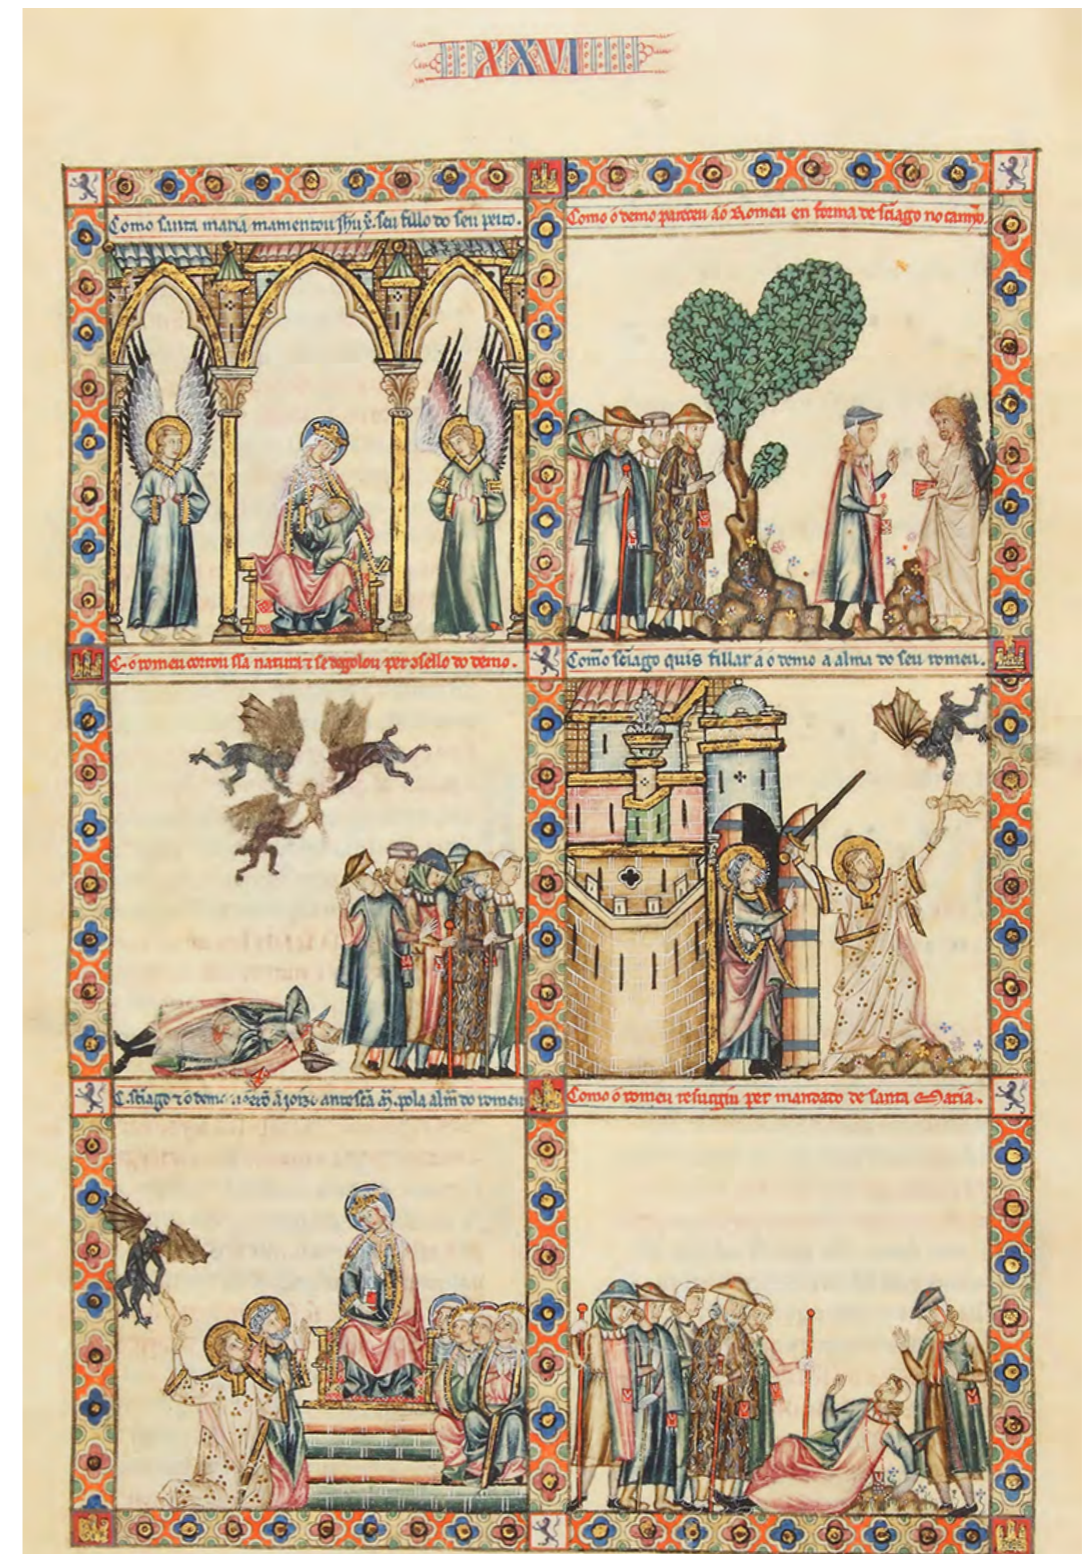 XXVI
Como santa maria mamentou seu fillo do seu peito.
Como o demo pareceu ao Romeu en forma de sciago no camỹo.
C. o romeu cortou ssa natura ⁊ se degolou per ꝯsello do demo.
Como sciago quis fillar a o demo a alma do seu romeu.
C. sciago ⁊ o demo ante sca pola alma do romeu
Como o romeu resurgiu per mandado de santa Maria.